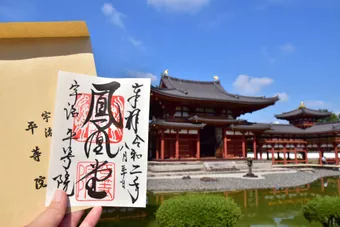 奉拝 令和二年
鳳凰堂
宇治 平等院
宇治
平等院